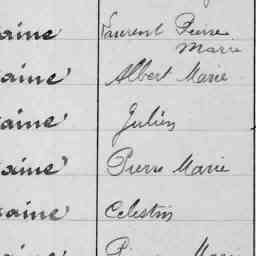 aine Laurent Pierre
Marie
aine Albert Marie
aine Julien
aine Pierre Marie
aine Celestin
aine Pierre Marie